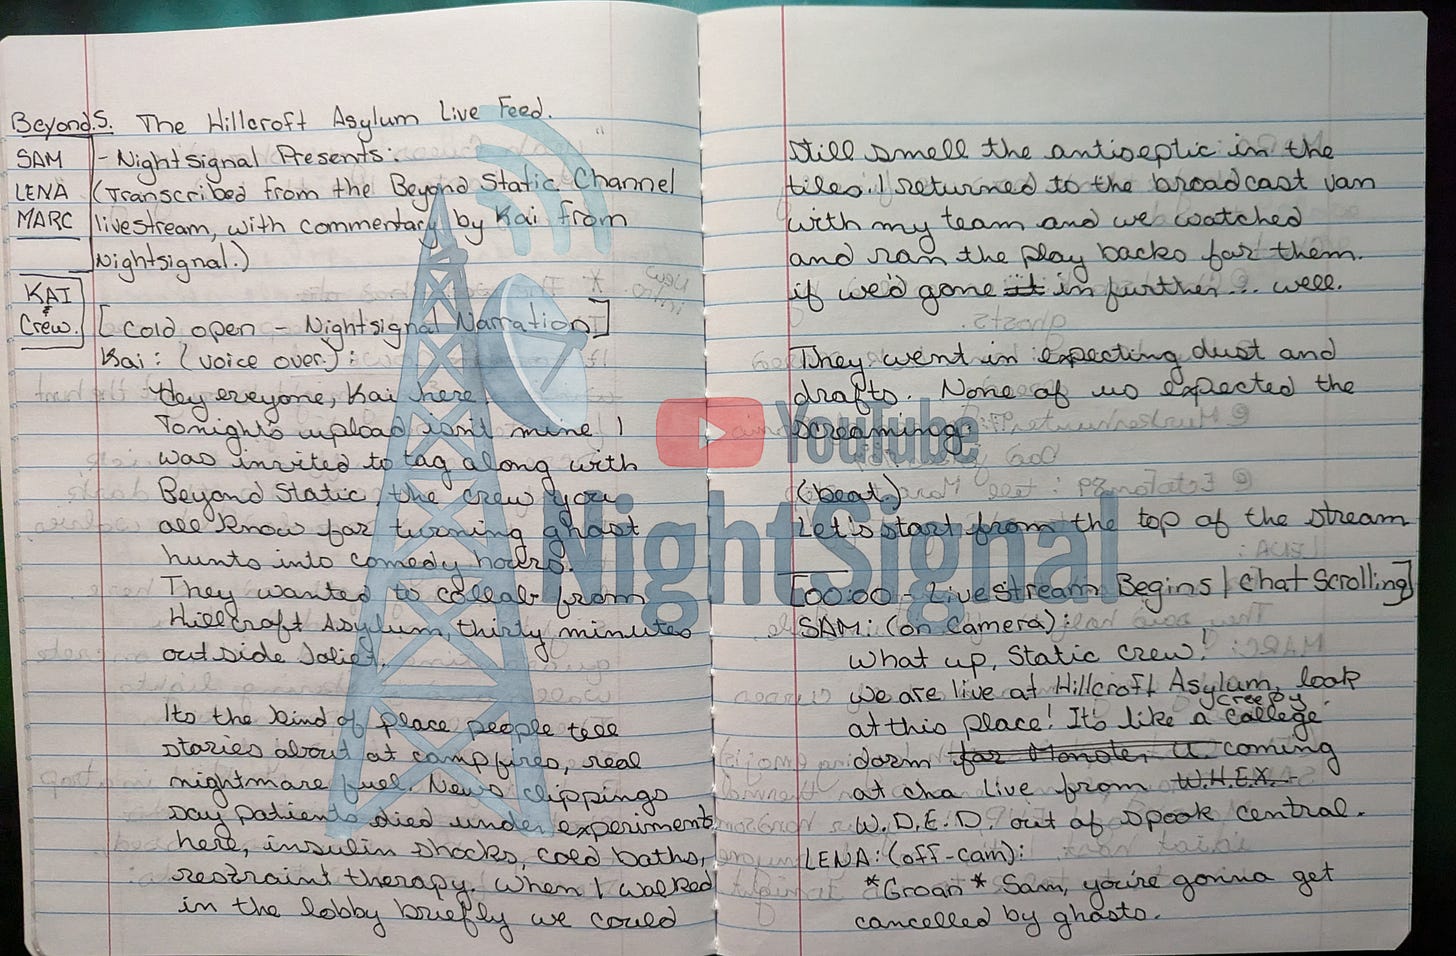 BeyondS. The Hillcroft Asylum Live Feed.
SAM
LENA
MARC
KAI
+
Crew.
- Nightsignal Presents:
(Transcribed from the Beyond Static Channel
livestream, with commentary by Kai from
Nightsignal.)
[cold open - Nightsignal Narration]
Kai: (voice over):
Hey everyone, Kai here.
Tonight's upload isn't mine I
was invited to tag along with
Beyond Static, the crew you
all know for turning ghost
hunts into comedy hours.
They wanted to collab from
Hillcroft Asylum, thirty minutes
outside Joliet.
Its the kind of place people tell
stories about at campfires, real
nightmare fuel. News clippings
say patients died under experiments
here, insulin shocks, cold baths,
restraint therapy. When I walked
in the lobby briefly we could
still smell the antiseptic in the
tiles. I returned to the broadcast van
with my team and we watched
and ran the play backs for them.
if we'd gone it in further... well.
They went in expecting dust and
drafts. None of us expected the
screaming.
(beat.)
Let's start from the top of the stream
[00:00 - LiveStream Begins | Chat Scrolling]
SAM: (on camera):
What up, Static Crew!
we are live at Hillcroft Asylum, look
at this place! It's like a creepy college
dorm for Monster U. coming
at cha live from W.H.E.X. -
W.D.E.D. out of spook central.
LENA: (off-cam):
*Groan* Sam, you're gonna get
cancelled by ghosts.
YouTube
NightSignal